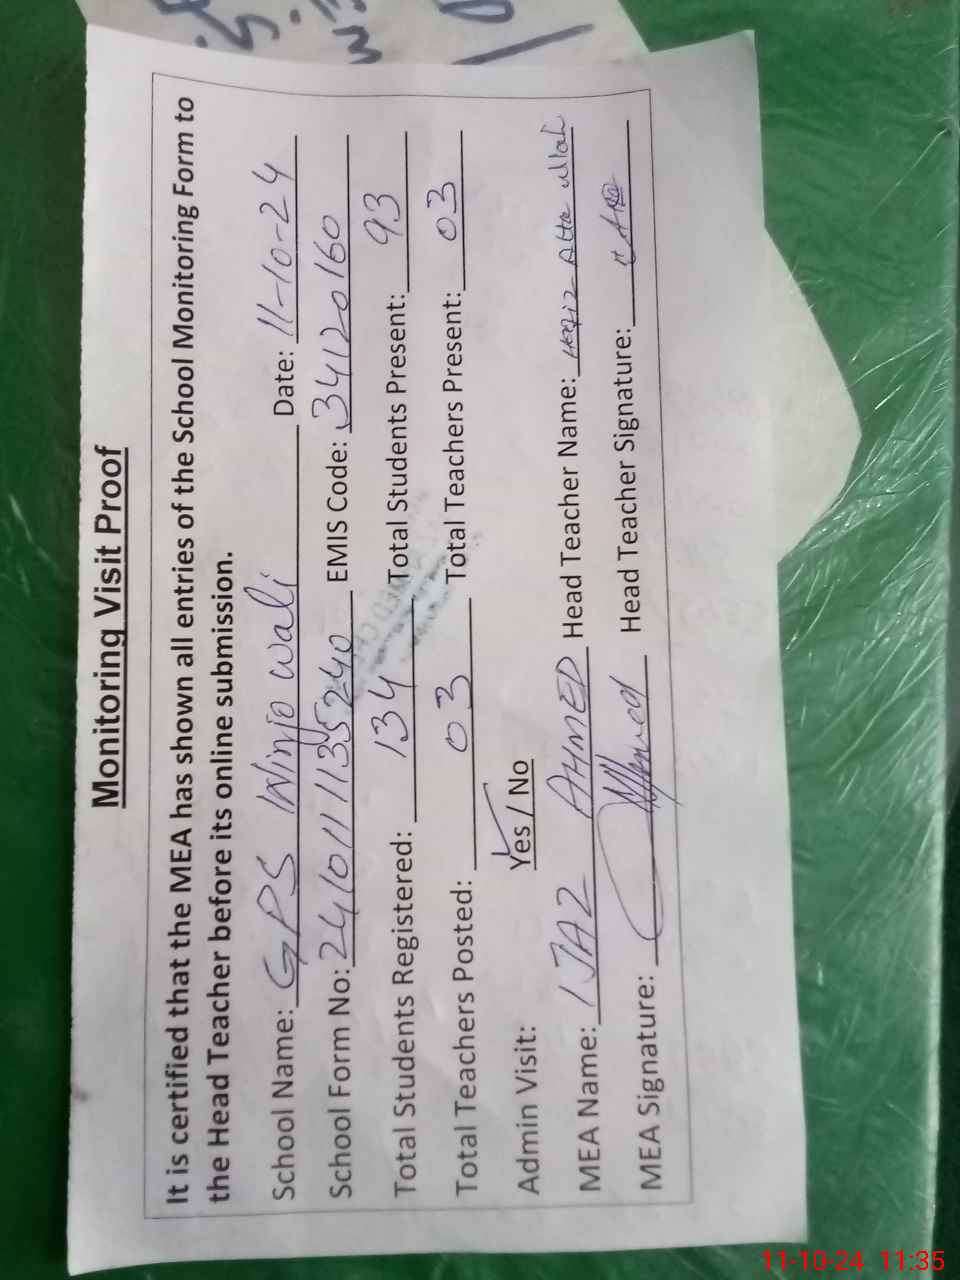 Monitoring Visit Proof
It is certified that the MEA has shown all entries of the School Monitoring Form to
the Head Teacher before its online submission.
School Name: GPS Winjo wali Date: 11-10-24
School Form No: 241011135240 EMIS Code: 34120160
Total Students Registered: 134 Total Students Present: 93
Total Teachers Posted: 03 Total Teachers Present: 03
Admin Visit: Yes / No
MEA Name: IJAZ AHMED Head Teacher Name: Hafiz Atta ullah
MEA Signature: Head Teacher Signature:
11-10-24 11:35